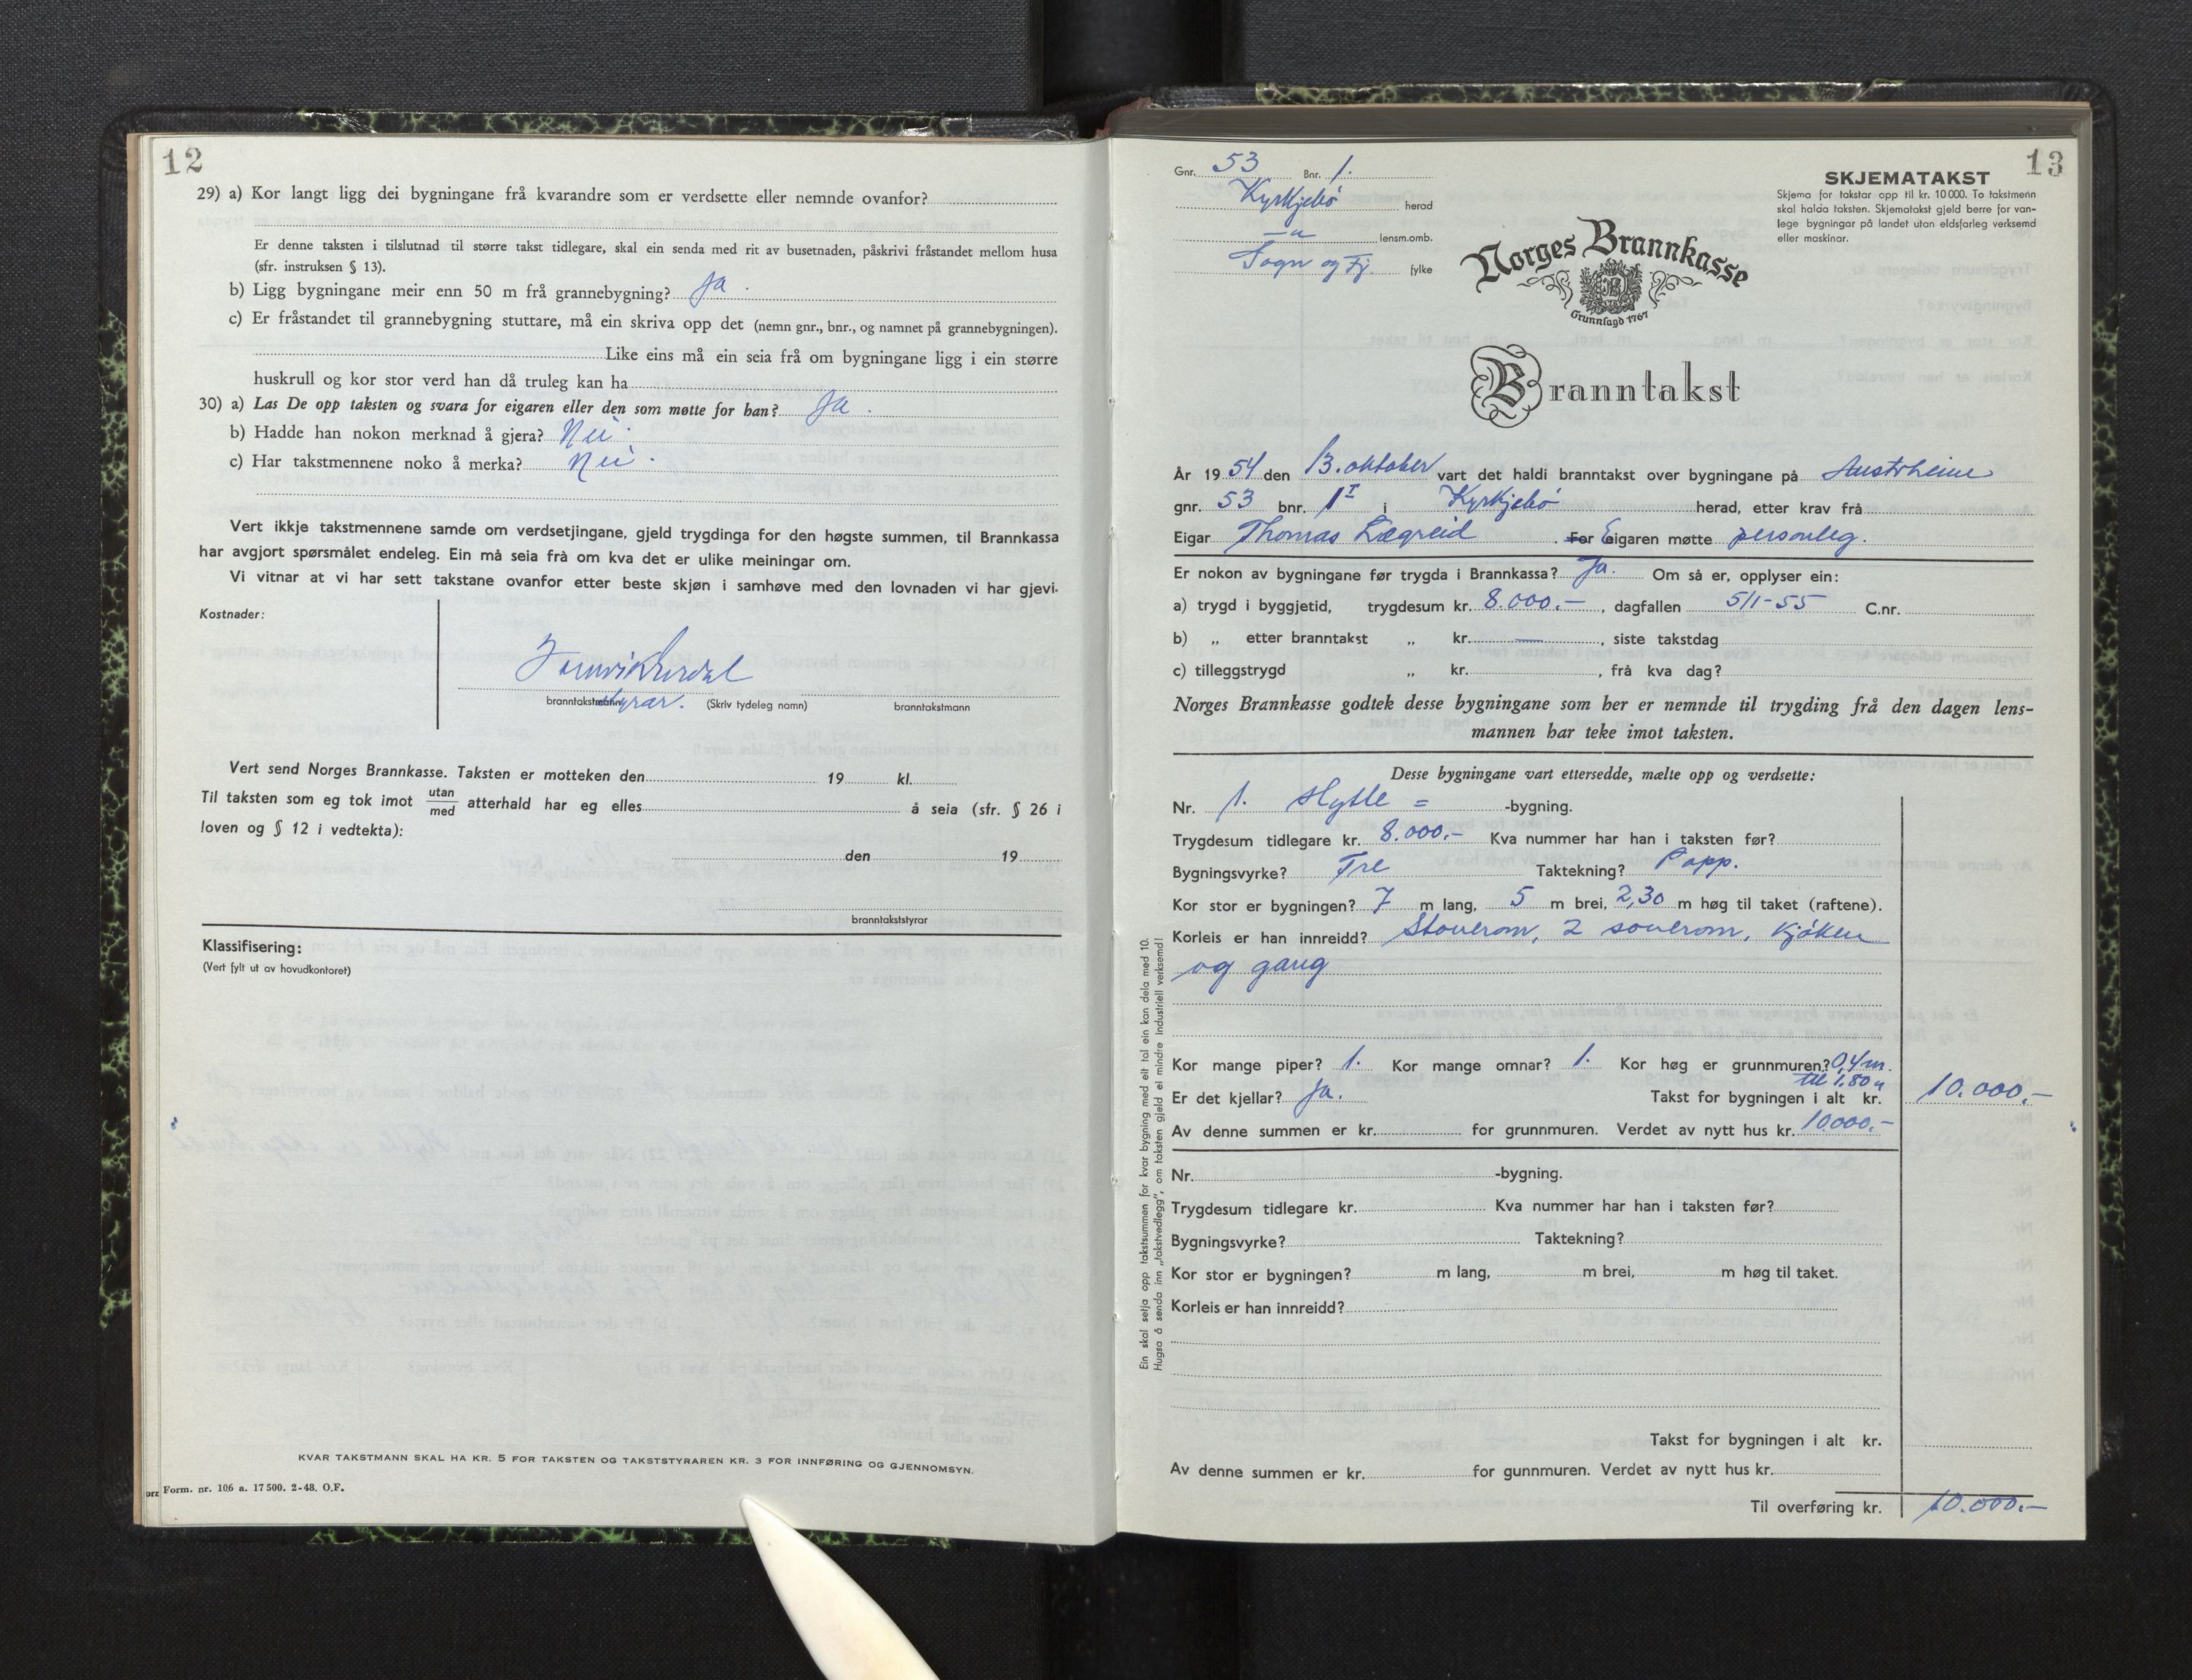 12
29) a) Kor langt ligg dei bygningane frå kvarandre som er verdsette eller nemnde ovanfor?
Er denne taksten i tilslutnad til større takst tidlegare, skal ein senda med rit av busetnaden, påskrivi fråstandet mellom husa
(sfr. instruksen § 13).
b) Ligg bygningane meir enn 50 m frå grannebygning? Ja.
c) Er fråstandet til grannebygning stuttare, må ein skriva opp det (nemn gnr., bnr., og namnet på grannebygningen).
Like eins må ein seia frå om bygningane ligg i ein større
huskrull og kor stor verd han då truleg kan ha
30) a) Las De opp taksten og svara for eigaren eller den som møtte for han? Ja.
b) Hadde han nokon merknad å gjera? Nei.
c) Har takstmennene noko å merka? Nei.
Vert ikkje takstmennene samde om verdsetjingane, gjeld trygdinga for den høgste summen, til Brannkassa
har avgjort spørsmålet endeleg. Ein må seia frå om kva det er ulike meiningar om.
Vi vitnar at vi har sett takstane ovanfor etter beste skjøn i samhøve med den lovnaden vi har gjevi.
Kostnader:
branntakststyrar. (Skriv tydeleg namn) branntakstmann
Vert send Norges Brannkasse. Taksten er motteken den 19 kl.
Til taksten som eg tok imot utan/med atterhald har eg elles å seia (sfr. § 26 i
loven og § 12 i vedtekta):
den 19
branntakststyrar
Klassifisering:
(Vert fylt ut av hovudkontoret)
KVAR TAKSTMANN SKAL HA KR. 5 FOR TAKSTEN OG TAKSTSTYRAREN KR. 3 FOR INNFØRING OG GJENNOMSYN.
Form. nr. 106 a. 17 500. 2-48. O.F.
13
Gnr. 53 Bnr. 1.
Kyrkjebø herad
—"— lensm.omb.
Sogn og Fj. fylke
SKJEMATAKST
Skjema for takstar opp til kr. 10 000. To takstmenn
skal halda taksten. Skjematakst gjeld berre for van-
lege bygningar på landet utan eldsfarleg verksemd
eller maskinar.
Norges Brannkasse
Grunnlagd 1767
Branntakst
År 1954 den 13. oktober vart det haldi branntakst over bygningane på Austrheim
gnr. 53 bnr. 1 I i Kyrkjebø herad, etter krav frå
Eigar Thomas Lægreid. For Eigaren møtte personleg.
Er nokon av bygningane før trygda i Brannkassa? Ja. Om så er, opplyser ein:
a) trygd i byggjetid, trygdesum kr. 8.000.–, dagfallen 5/1-55 C.nr.
b) „ etter branntakst „ kr. —, siste takstdag
c) tilleggstrygd „ kr. , frå kva dag?
Norges Brannkasse godtek desse bygningane som her er nemnde til trygding frå den dagen lens-
mannen har teke imot taksten.
Desse bygningane vart ettersedde, mælte opp og verdsette:
Nr. 1. Hytte = -bygning.
Trygdesum tidlegare kr. 8.000.– Kva nummer har han i taksten før?
Bygningsvyrke? Tre Taktekning? Papp.
Kor stor er bygningen? 7 m lang, 5 m brei, 2,30 m høg til taket (raftene).
Korleis er han innreidd? Stoverom, 2 soverom, kjøken
og gang
Kor mange piper? 1. Kor mange omnar? 1. Kor høg er grunnmuren? 0,4 m.
til 1,80 "
Er det kjellar? Ja. Takst for bygningen i alt kr. 10.000.–
Av denne summen er kr. for grunnmuren. Verdet av nytt hus kr. 10.000.–
Nr. -bygning.
Trygdesum tidlegare kr. Kva nummer har han i taksten før?
Bygningsvyrke? Taktekning?
Kor stor er bygningen? m lang, m brei, m høg til taket.
Korleis er han innreidd?
Takst for bygningen i alt kr.
Av denne summen er kr. for gunnmuren. Verdet av nytt hus kr.
Til overføring kr. 10.000.–
Ein skal setja opp takstsummen for kvar bygning med eit tal ein kan dela med 10.
Hugsa å senda inn „takstvedlegg", om taksten gjeld ei mindre industriell verksemd!